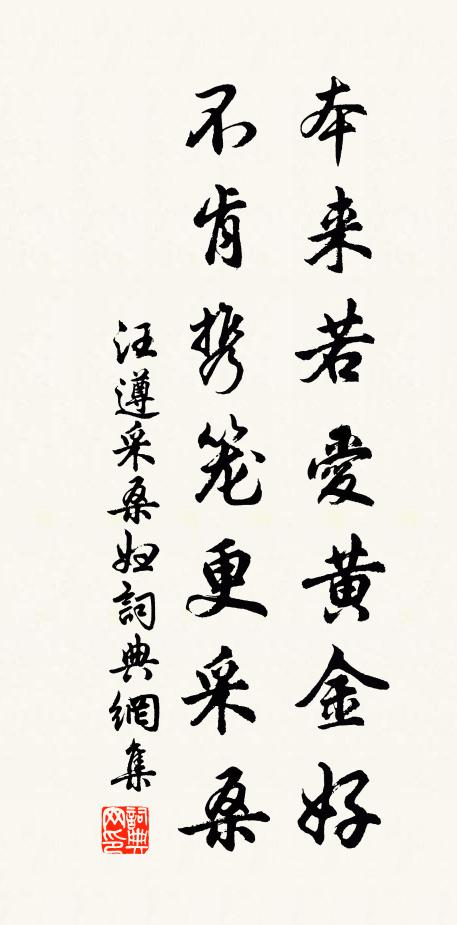 本来若愛黄金好
不肯携笼更采桑
汪遵采桑妇詞典網集
詞典网印